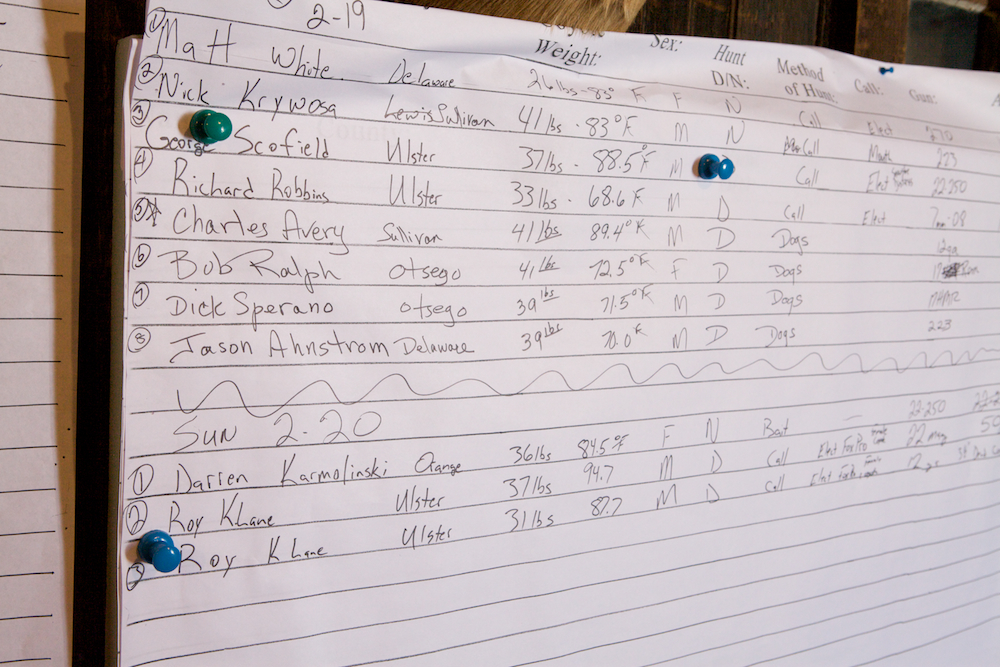 2-19
Weight: Sex: Hunt D/N: Method of Hunt: Call: Gun:
① Matt White Delaware 26 lbs - 83° F F N Call Elect
② Nick Krywosa Sullivan 41 lbs - 83°F M N Call Mouth 223
③ George Scofield Ulster 37 lbs - 88.5°F M Call Elect 22-250
④ Richard Robbins Ulster 33 lbs - 68.6 F M D Call Elect 7mm-08
⑤* Charles Avery Sullivan 41 lbs 89.4°F M D Dogs 12ga
⑥ Bob Ralph Otsego 41 lbs 72.5°F F D Dogs
⑦ Dick Sperano Otsego 39 lbs 71.5°F M D Dogs
⑧ Jason Ahnstrom Delaware 39 lbs 70.0°F M D Dogs 223
SUN 2-20
① Darren Karmolinski Orange 36 lbs 84.5°F F N Bait — 22-250
② Roy Khane Ulster 37 lbs 94.7 M D Call Elect FoxPro
③ Roy Khane Ulster 31 lbs 87.7 M D Call Elect